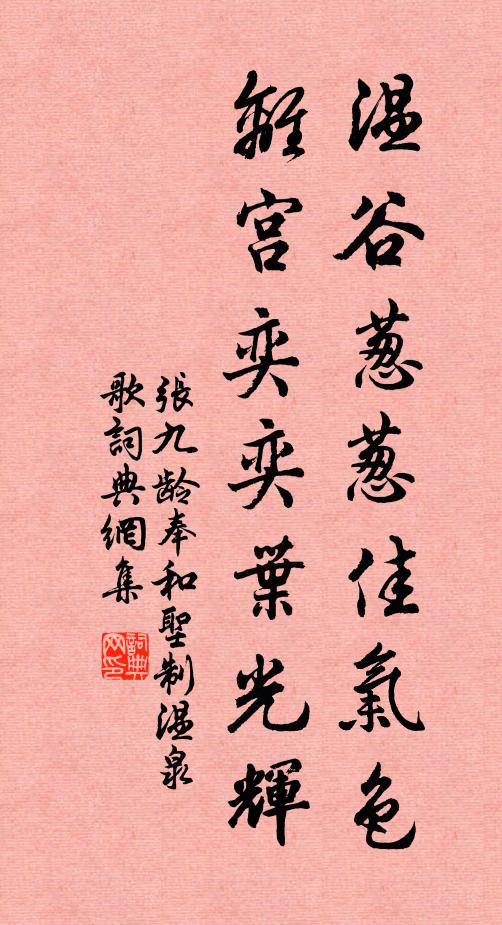 温谷葱葱佳氣色
離宮奕奕葉光輝
張九龄奉和聖制温泉
歌詞典網集
詞典网印